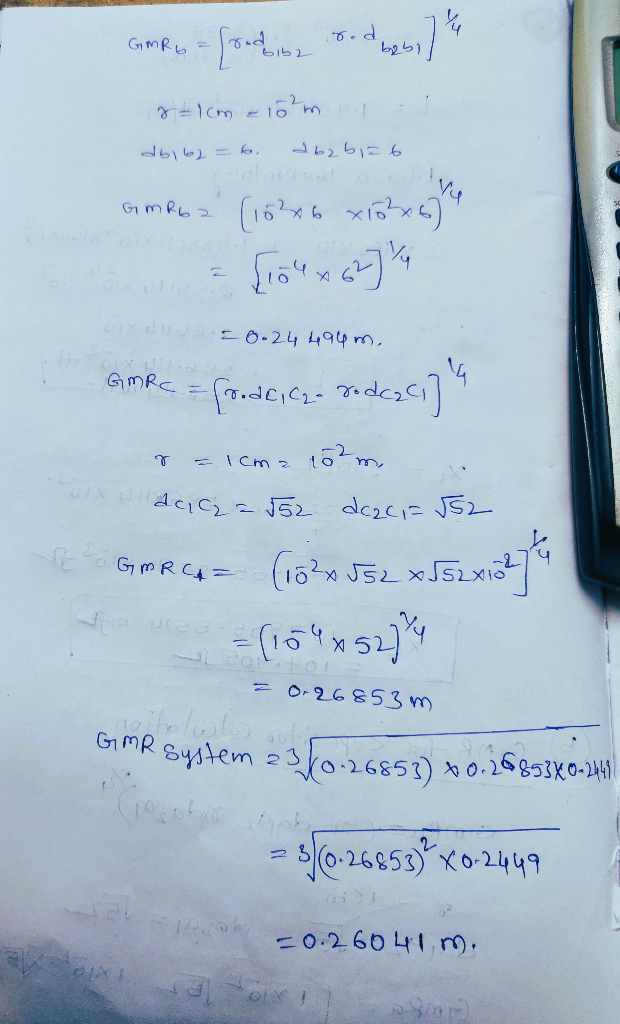 GMR_b = [r.d_b1b2 r.d_b2b1]^1/4
r = 1cm = 10^-2 m
d_b1b2 = 6. d_b2b1 = 6
GMR_b = (10^-2 × 6 × 10^-2 × 6)^1/4
= [10^-4 × 6^2]^1/4
= 0.24494m.
GMR_C = [r.d_C1C2. r.d_C2C1]^1/4
r = 1cm = 10^-2 m,
d_C1C2 = √52 d_C2C1 = √52
GMR_C = (10^-2 × √52 × √52 × 10^-2]^1/4
= (10^-4 × 52]^1/4
= 0.26853m
GMR system = ∛(0.26853) × 0.26853 × 0.2449
= ∛(0.26853)^2 × 0.2449
= 0.26041 m.